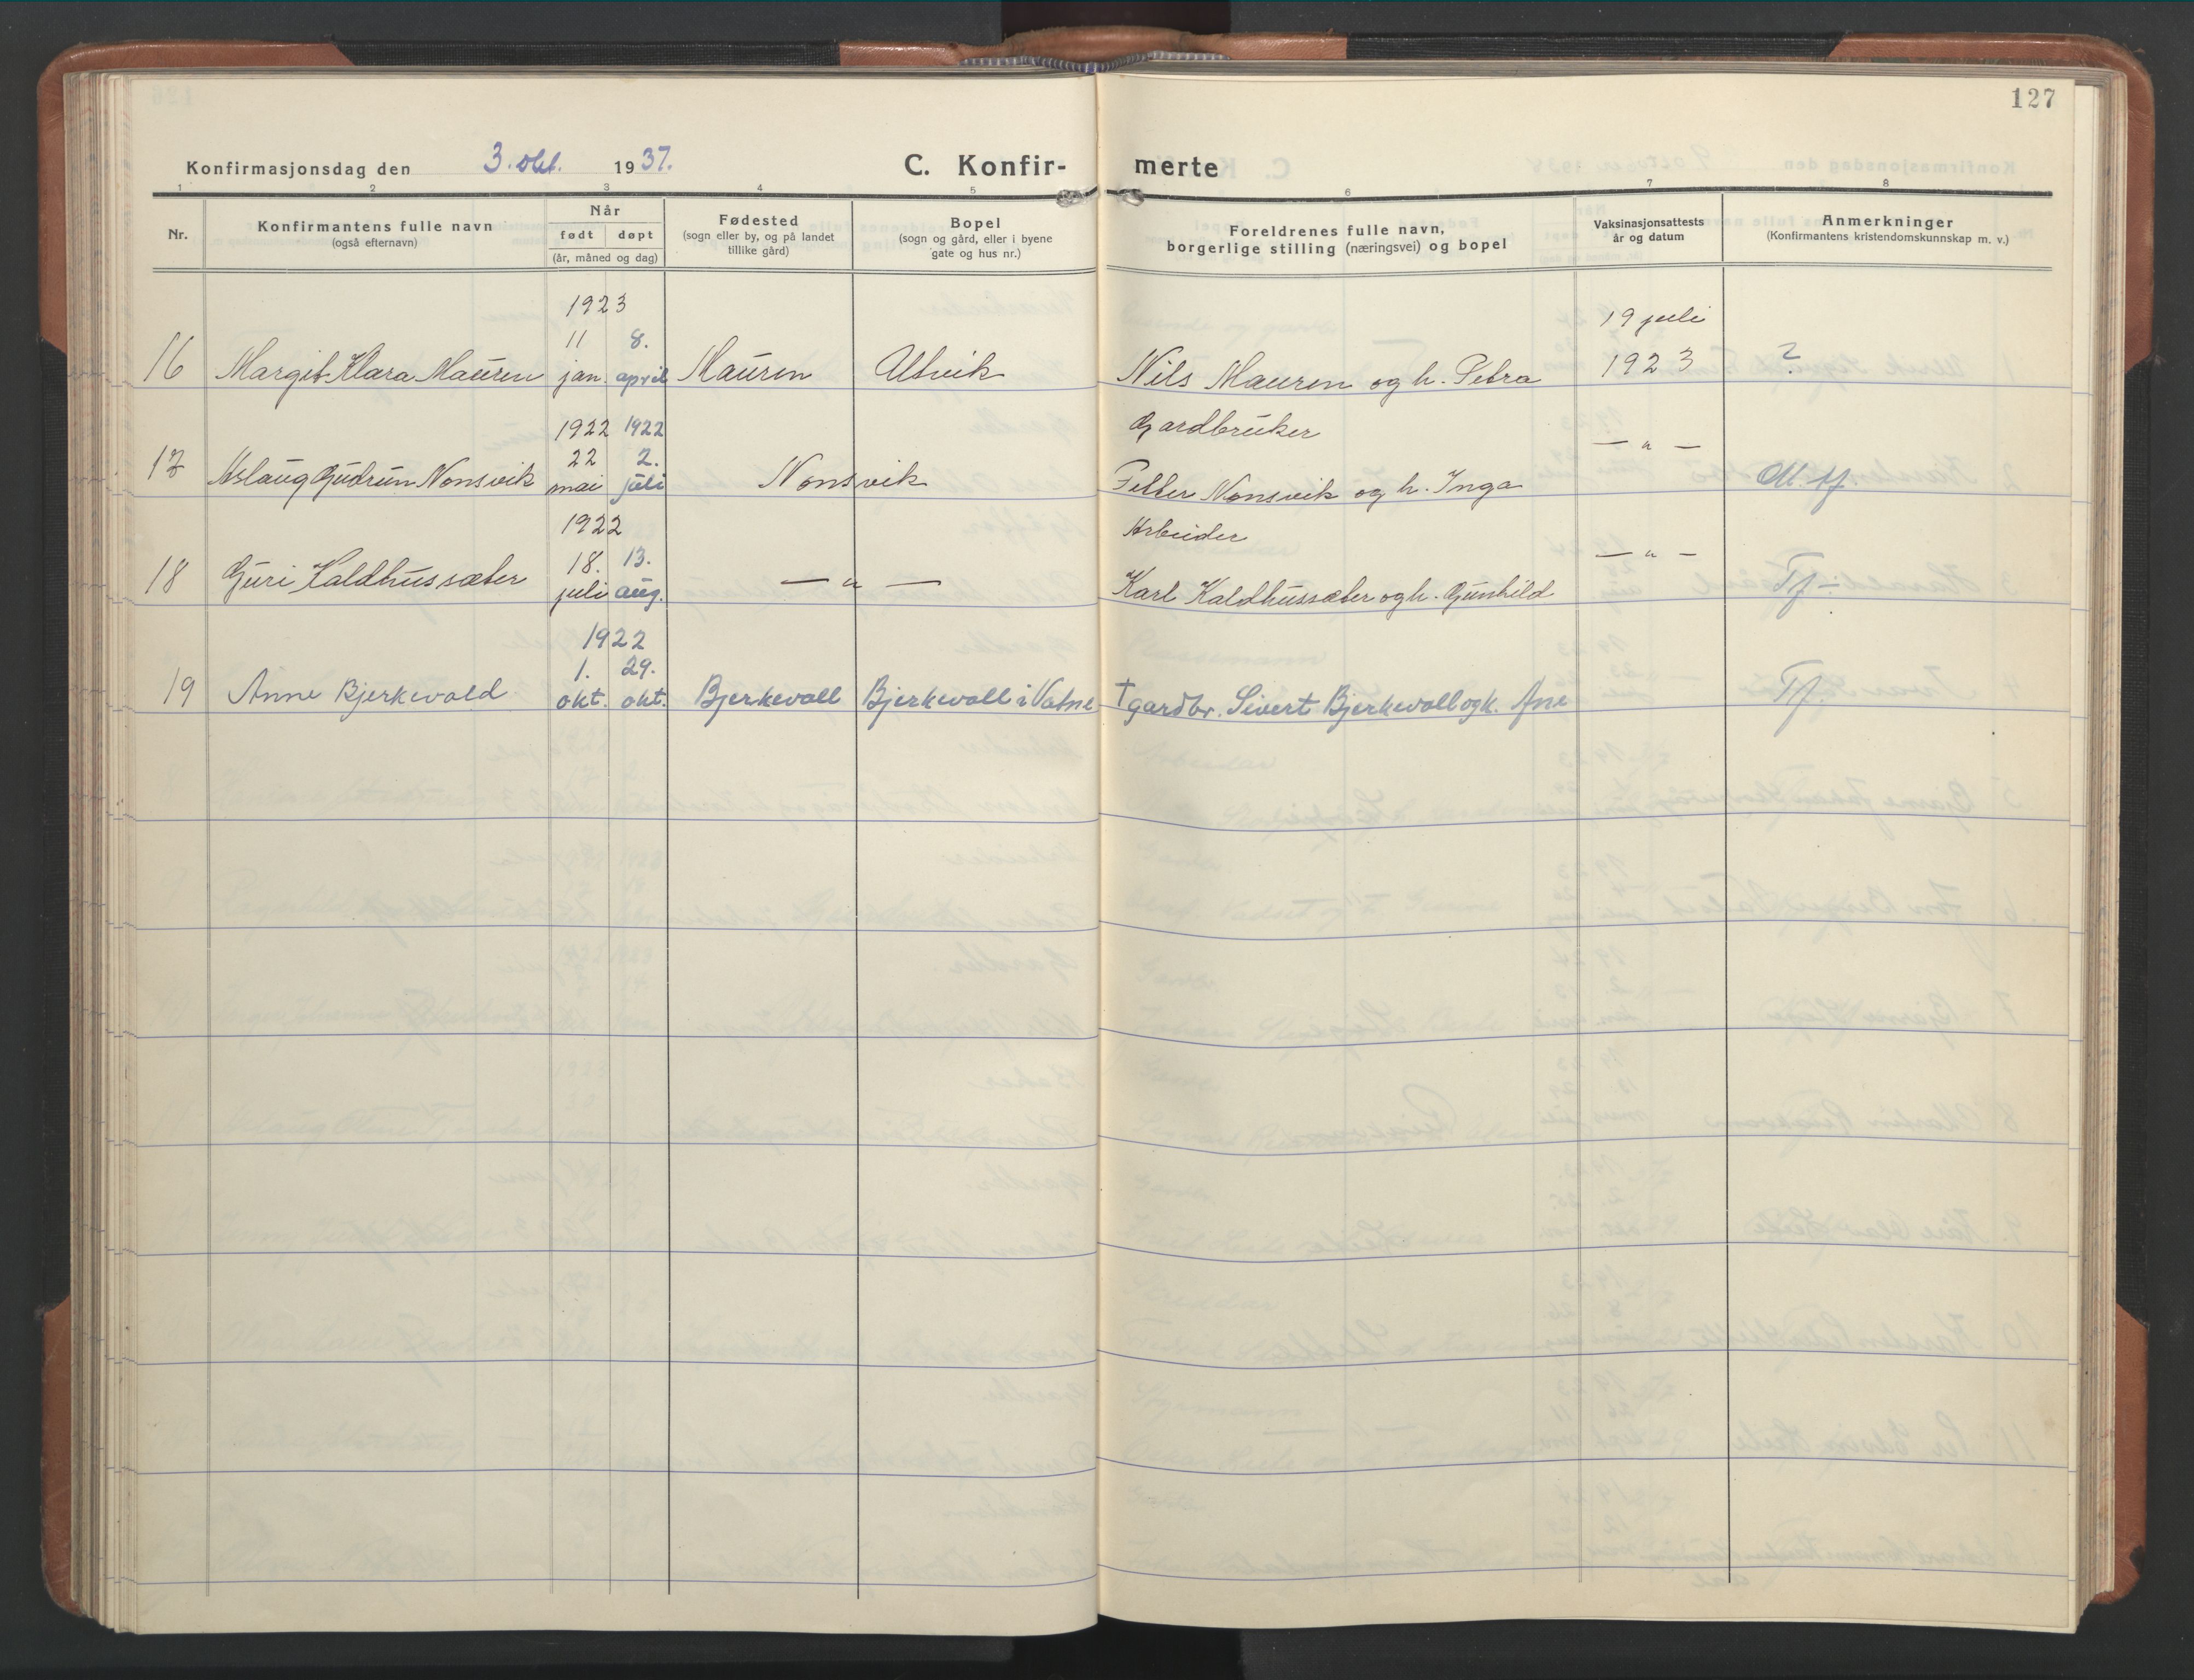 127
Konfirmasjonsdag den 3. okt. 1937.
C. Konfir-
merte
1 2 3 4 5 6 7 8
Nr.
Konfirmantens fulle navn
(også efternavn)
Når
født døpt
(år, måned og dag)
Fødested
(sogn eller by, og på landet
tillike gård)
Bopel
(sogn og gård, eller i byene
gate og hus nr.)
Foreldrenes fulle navn,
borgerlige stilling (næringsvei) og bopel
Vaksinasjonsattests
år og datum
Anmerkninger
(Konfirmantens kristendomskunnskap m. v.)
1923
11 8.
19 juli
16 Margit Klara Mauren jan. april Mauren Utvik Nils Mauren og h. Petra 1923 ?
1922 1922
22 2.
Gardbruker
— " —
17 Aslaug Gudrun Nonsvik mai juli Nonsvik Petter Nonsvik og h. Inga M. tf.
1922
18. 13.
Arbeider
— " —
18 Guri Kaldhussæter juli aug. — " — Karl Kaldhussæter og h. Gunhild Tf ÷
1922
1. 29.
19 Anne Bjerkevold okt. okt. Bjerkevoll Bjerkevoll i Vatne † gardbr. Sivert Bjerkevoll og k. Ane Tf.